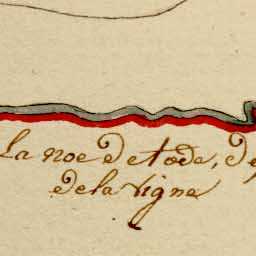 La noe de tode, de
de la vigne